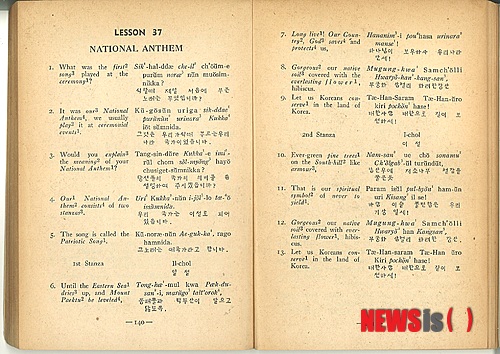 LESSON 37
NATIONAL ANTHEM
1. What was the first
song² played at the
ceremony³?
Sik³-hal-ddæ che-il¹ ch'ŏŭm-e
purŭn norae² nŭn muŏsim-
nikka?
식할때 제일 처음에 부른
노래는 무엇입니까?
2. It was our¹ National
Anthem², we usually
play³ it at ceremonial
events⁴.
Kŭ-gŏsŭn uriga sik-ddæ⁴
purŭnŭn³ urinara¹ Kukka²
iŏt sŭmnida.
그것은 우리가식때 부르는우리
나라 국가이었습니다.
3. Would you explain³
the meaning² of your
National Anthem¹?
Tang-sin-dŭre Kukka¹-e ŭui²-
rŭl chom sŏl-myŏng³ hayŏ
chusiget-sŭmnikka?
당신들의 국가의 의의를 좀
설명하여 주시겠읍니까?
4. Our¹ National An-
them² consists⁴ of two
stanzas³.
Uri¹ Kukka²-nŭn i-jŏl³-lo tœ⁴-ŏ
issŭmnida.
우리 국가는 이절로 되어
있읍니다.
5. The song is called the
Patriotic Song¹.
Kŭ-norae-nŭn Ae-guk-ka¹, rago
hamnida.
그노래는 애국가라고 합니다.
1st Stanza
Il-chol
일 절
6. Until the Eastern Sea¹
dries³ up, and Mount
Paektu² be leveled⁴,
Tong-hæ¹-mul kwa Pæk-du-
san²-i, marŭgo³ talt'orok⁴,
동해물과 백두산이 말으고
닳도록,
—140—
7. Long live⁵! Our Coun-
try², God¹ saves⁴ and
protects³ us,
Hananim¹-i pou³hasa urinara²
manse⁵!
하나님이 보우하사 우리나라
만세!
8. Gorgeous⁵ our native
soil⁴ covered with the
everlasting flower¹,
hibiscus.
Mugung-kwa¹ Samch'ŏlli
Hwaryŏ-han⁵-kang-san⁴,
무궁화 삼천리 화려한강산
9. Let us Koreans con-
serve² in the land of
Korea.
Tæ-Han-Saram Tæ-Han-ŭro
Kiri pochŏn² hase!
대한사람 대한으로 길이 보
전하세!
2nd Stanza
I-chol
이 절
10. Ever-green pine trees³
on the South-hill² like
armour²,
Nam-san¹ ue chŏ sonamu³
남산위에 저소나무 철갑을
11. This is our spiritual
symbol² of never to
yield¹.
Param isŭl pul-byŏn¹ ham-ŭn
uri Kisang² il ne!
바람 이슬 불변함은 우리
기상 일세!
12. Gorgeous² our native
soil³ covered with ever-
lasting flower¹, hibis-
cus.
Mugung-kwa¹ Samch'ŏlli
Hwaryŏ² han Kangsan³,
무궁화 삼천리 화려한 강산,
13. Let us Koreans con-
serve¹ in the land of
Korea.
Tæ-Han-saram Tæ-Han ŭro
Kiri pochŏn¹ hase!
대한사람 대한으로 길이 보
전하세!
NEWSis( )